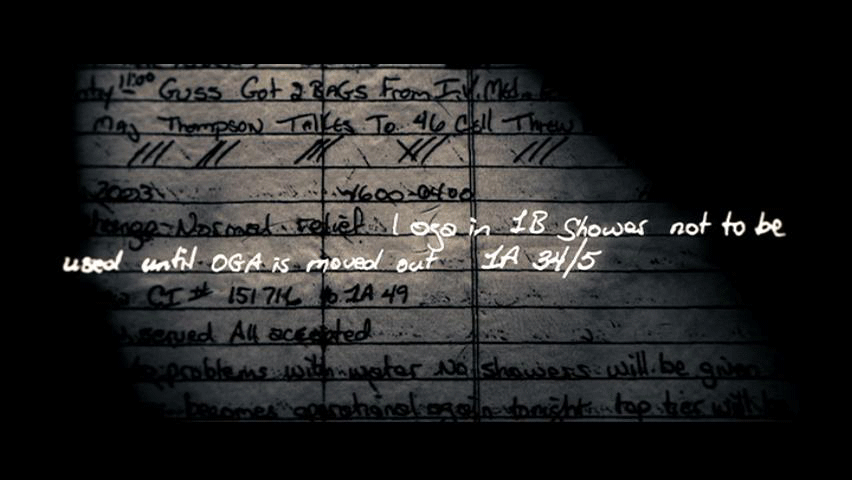 11:00 Guss Got 2 BAGS From I.V. Med.
Maj Thompson Talkes To 46 Cell Threw
/// /// /// /// ///
2003 1600-0400
change Normal relief 1 oga in 1B Shower not to be
used until OGA is moved out 1A 34/5
CI # 151716 1A 49
served All accepted
problems with water No showers will be given
becomes operational again tonight. top tier will be